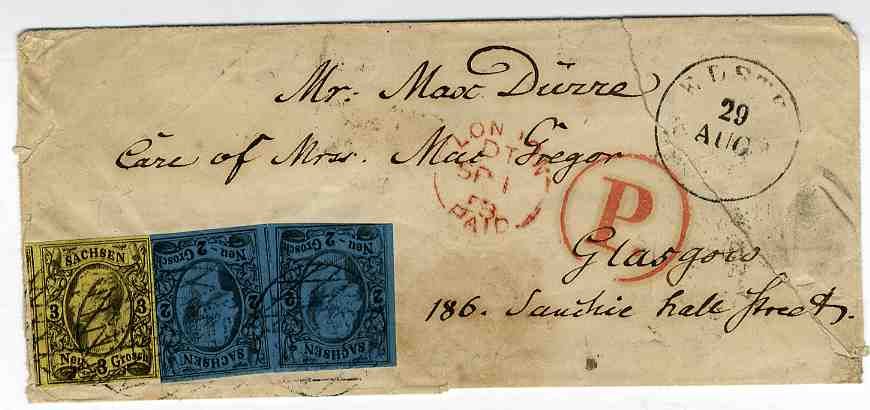 Mr. Max Dürre
Care of Mrs. Mac Gregor
Glasgow
186. Sauchie hall Street.
29
AUG
LONDON
SP 1
PAID
P.
SACHSEN
3 3
Neu-3 Grosch
SACHSEN
2 2
Neu-2 Grosch
SACHSEN
2 2
Neu-2 Grosch